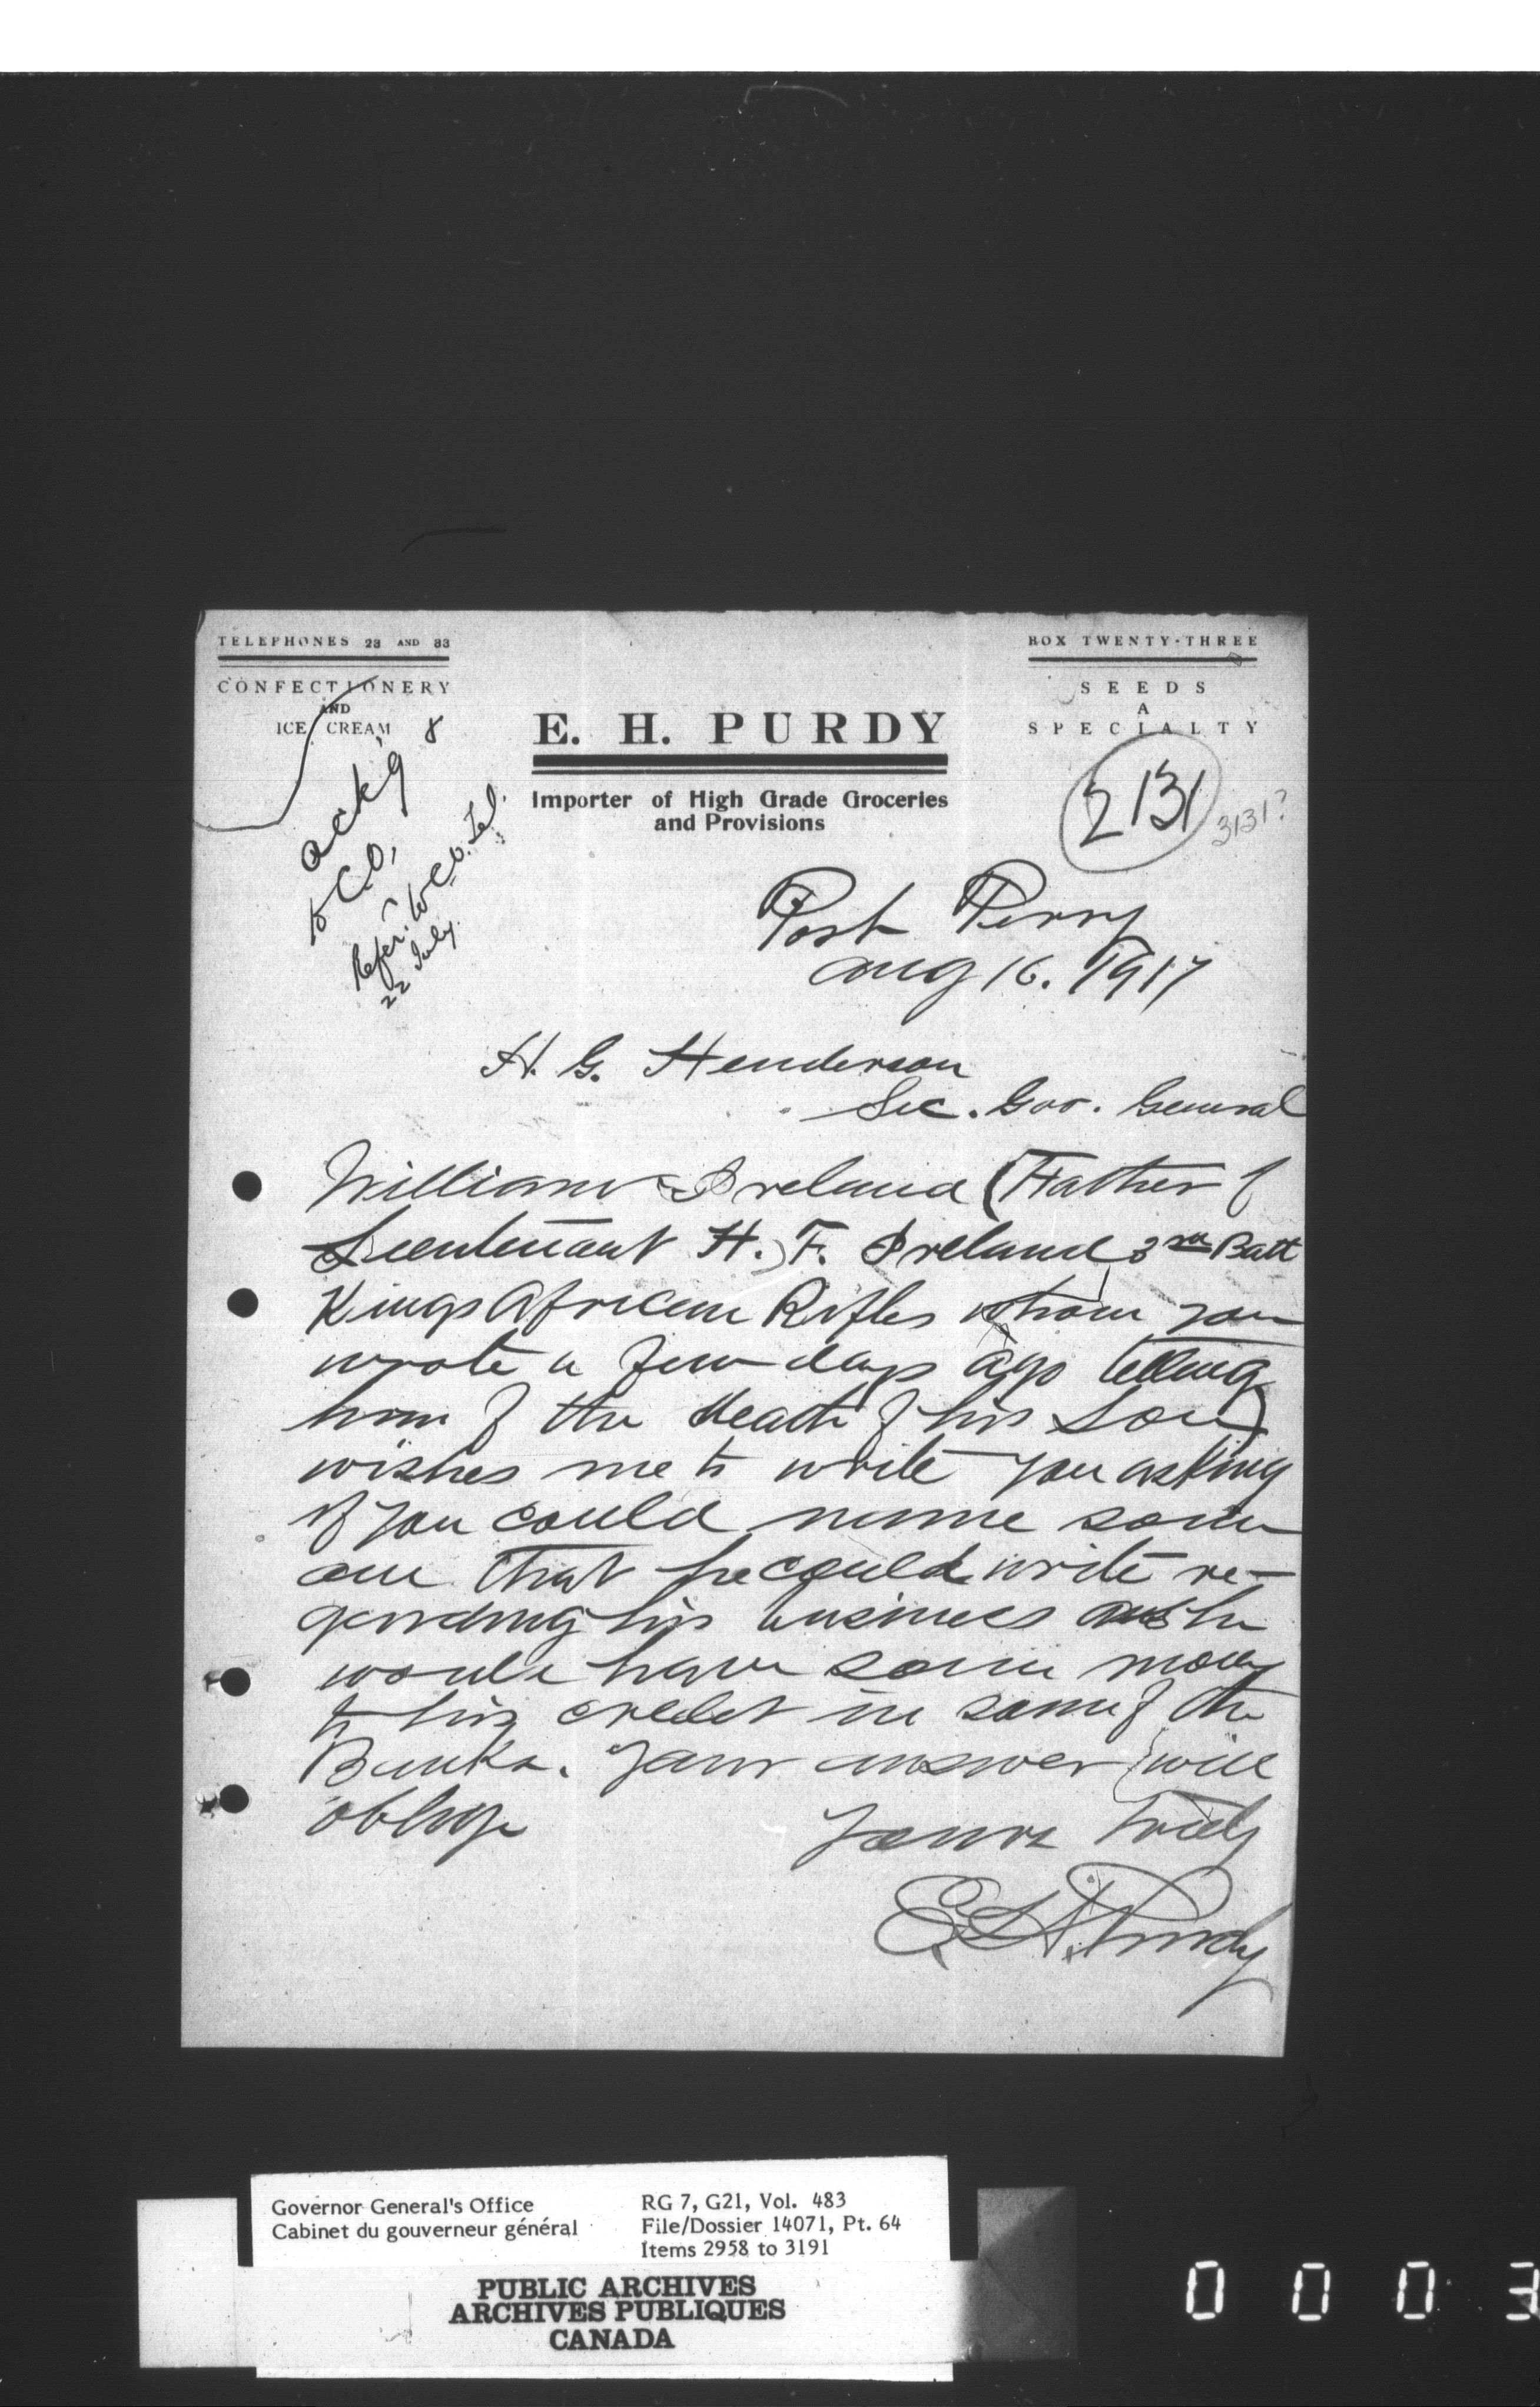 TELEPHONES 23 AND 33
CONFECTIONERY
AND
ICE CREAM
BOX TWENTY-THREE
SEEDS
A
SPECIALTY
E. H. PURDY
Importer of High Grade Groceries
and Provisions
ack'g
to C.O.
Refer. to C.O. Tel.
22 July.
2131
3131?
Port Perry
Aug 16. 1917
H. G. Henderson
Sec. Gov. General
William Ireland (Father of
Lieutenant H. F. Ireland 3rd Batt
Kings African Rifles whom you
wrote a few days ago telling
him of the death of his son)
wishes me to write you asking
if you could name some
one that he could write re-
garding his business as he
would have some money
to his credit in some of the
Banks. Your answer will
oblige
Yours truly
E. H. Purdy
Governor General's Office
Cabinet du gouverneur général
RG 7, G21, Vol. 483
File/Dossier 14071, Pt. 64
Items 2958 to 3191
PUBLIC ARCHIVES
ARCHIVES PUBLIQUES
CANADA
0 0 0 3